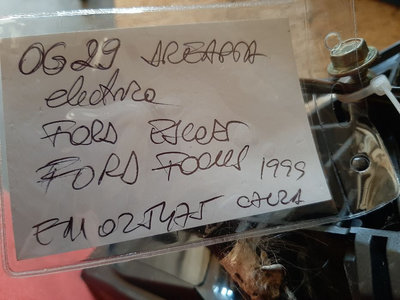 OG29 AREAPPA
electrica
FORD ESCORT
FORD FOCUS 1999
EM025475 CAUZA